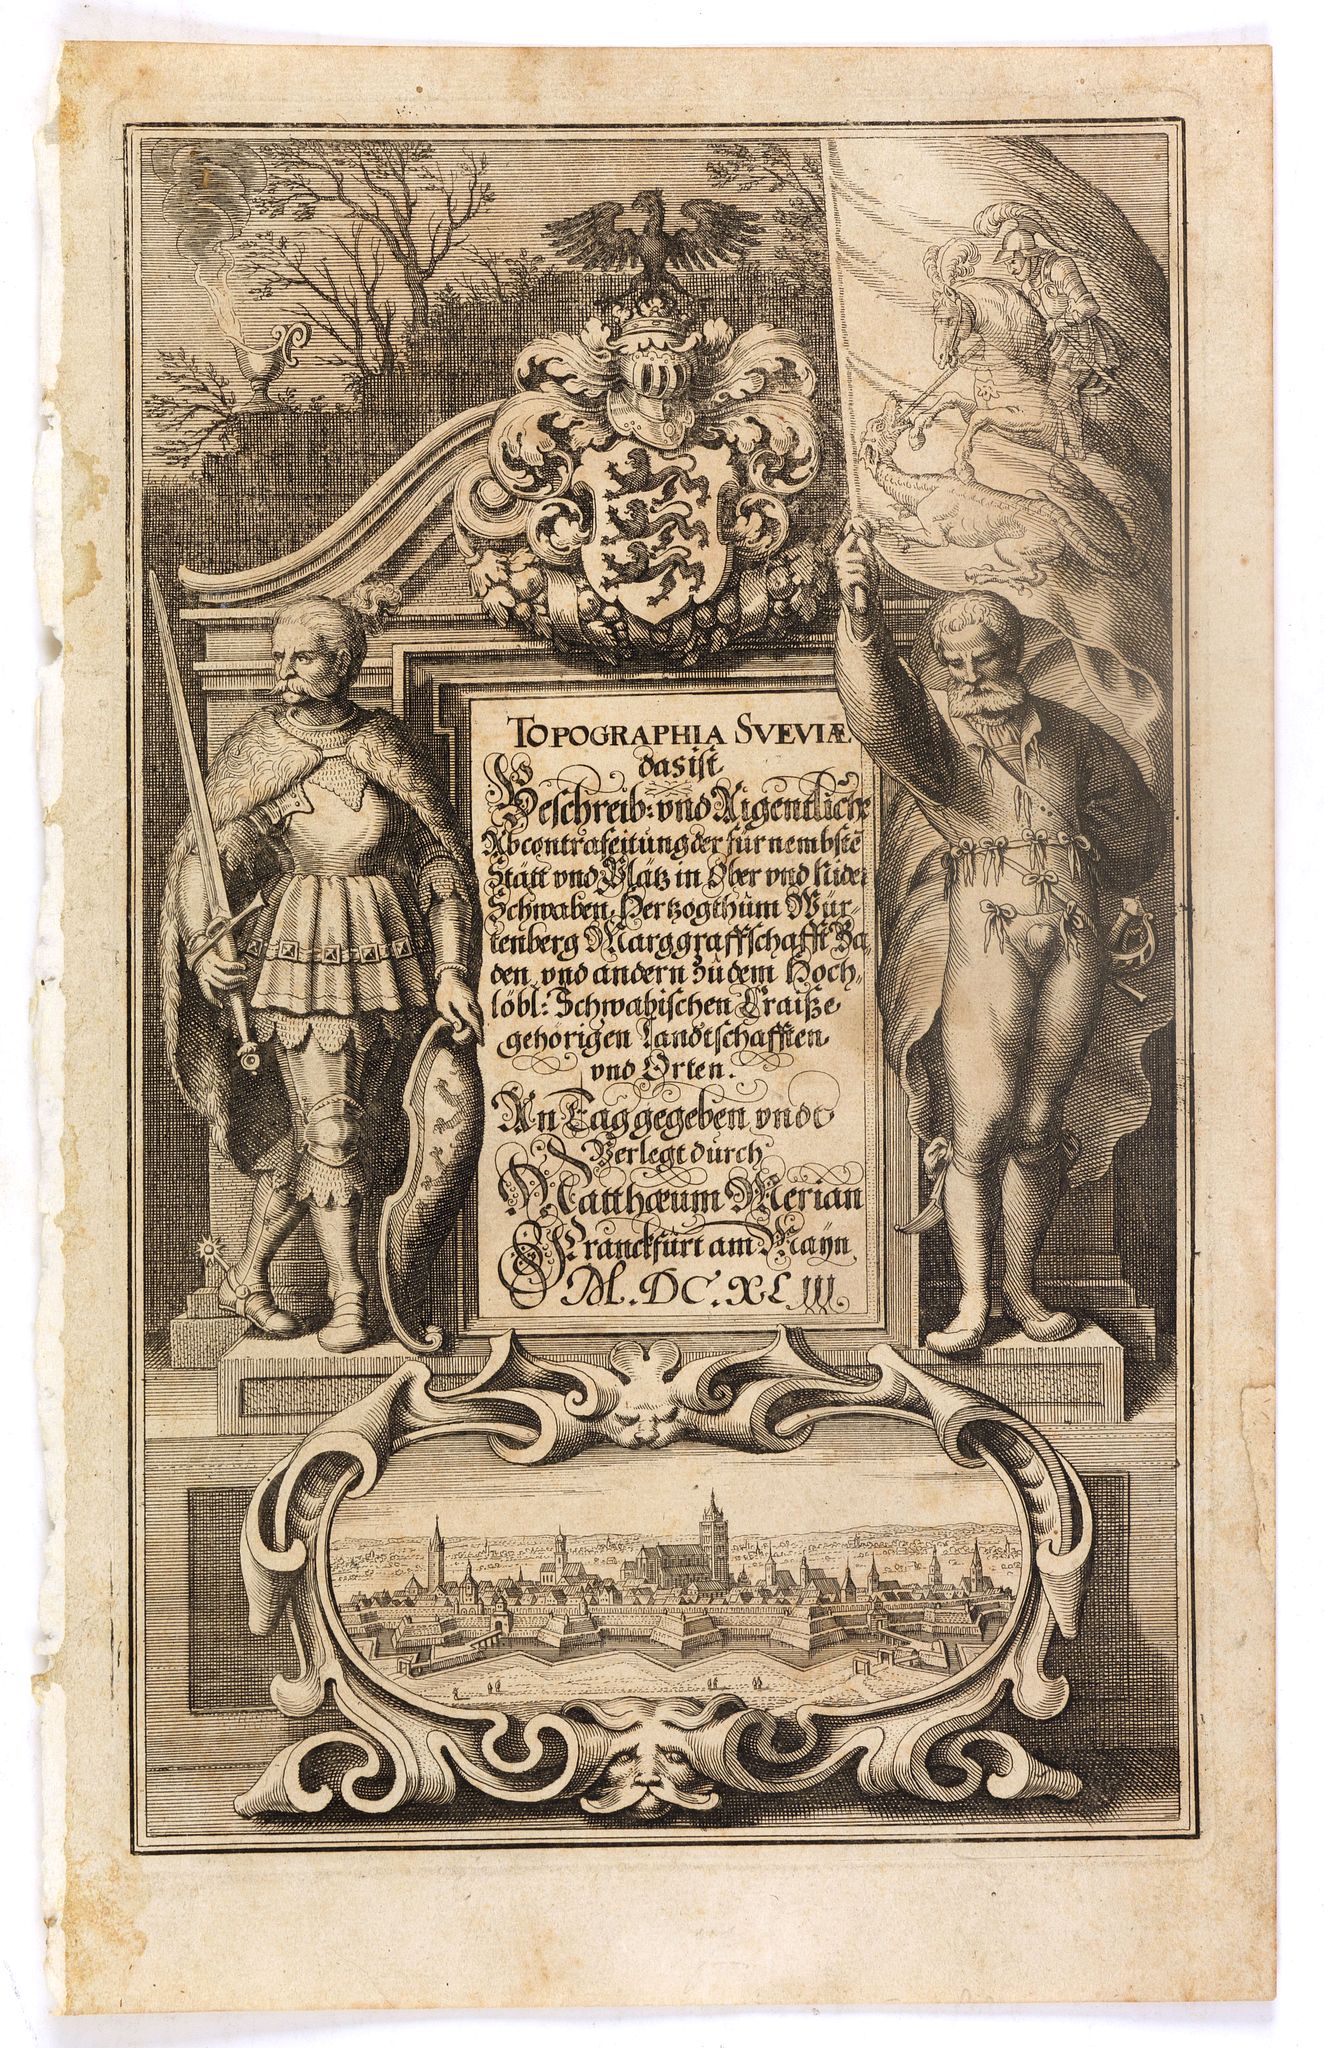 TOPOGRAPHIA SVEVIÆ
das ist
Beschreib: vnd Aigentliche
Abcontrafeitung der fürnembstē
Stätt vnd Plätz in Ober vnd Nider
Schwaben, Hertzogthum Wür-
tenberg Marggraffschafft Ba-
den vnd andern zu dem Hoch-
löbl: Schwabischen Craiße
gehörigen Landtschafften
vnd Orten.
An Tag gegeben vndt
Verlegt durch
Matthæum Merian
Franckfurt am Mayn
M.DC.XLIII.